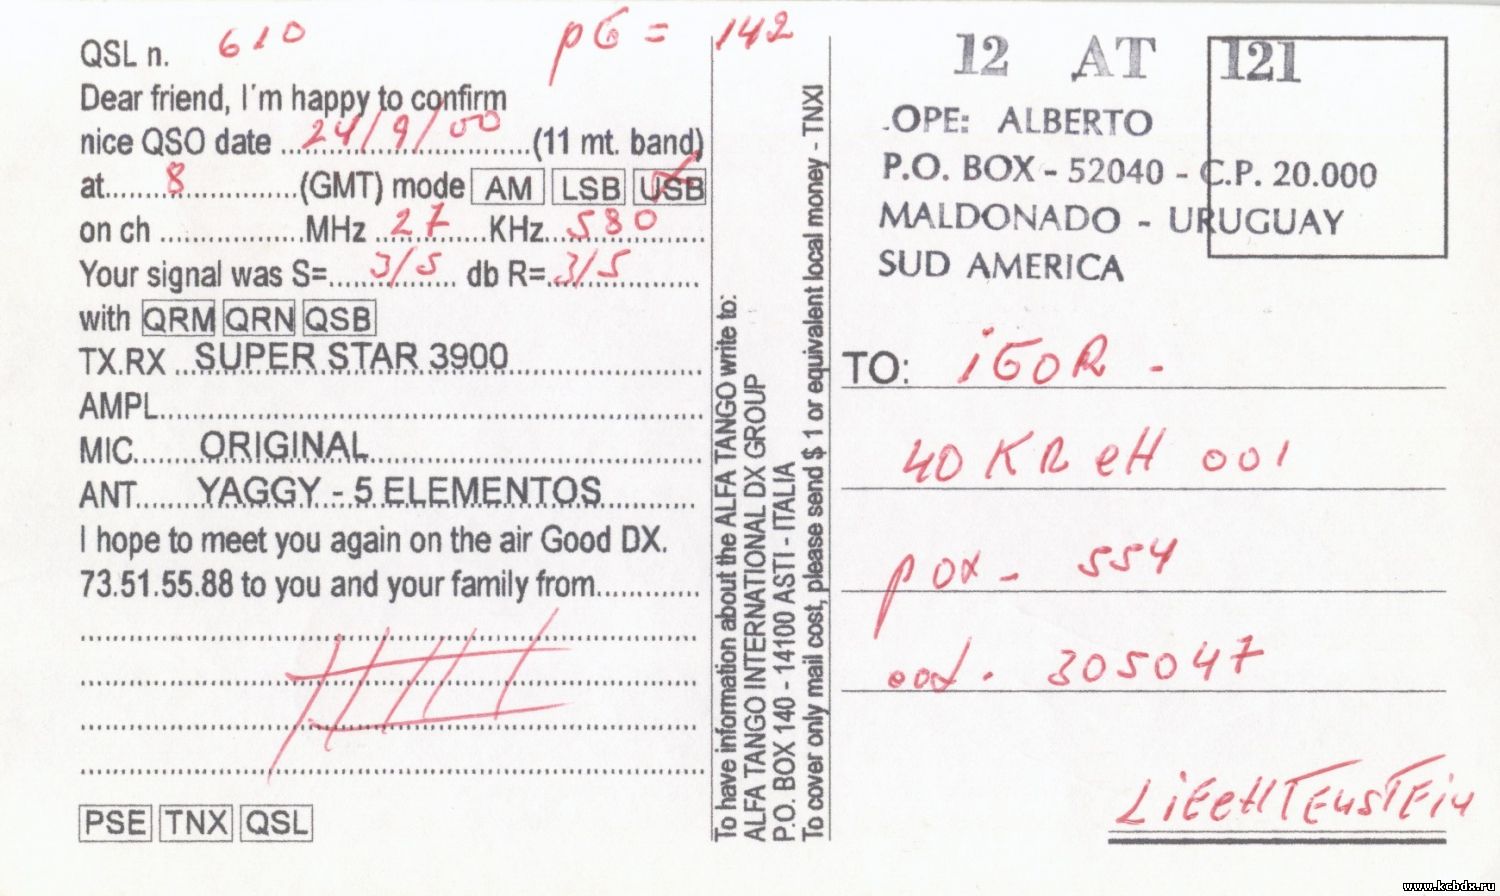 QSL n. 610
pG = 142
Dear friend, I'm happy to confirm
nice QSO date 24/9/00 (11 mt. band)
at 8 (GMT) mode AM LSB USB
on ch MHz 27 KHz 580
Your signal was S= 3/5 db R= 3/5
with QRM QRN QSB
TX.RX SUPER STAR 3900
AMPL
MIC ORIGINAL
ANT YAGGY - 5 ELEMENTOS
I hope to meet you again on the air Good DX.
73.51.55.88 to you and your family from
PSE TNX QSL
To have information about the ALFA TANGO write to:
ALFA TANGO INTERNATIONAL DX GROUP
P.O. BOX 140 - 14100 ASTI - ITALIA
To cover only mail cost, please send $ 1 or equivalent local money - TNX!
12 AT 121
OPE: ALBERTO
P.O. BOX - 52040 - C.P. 20.000
MALDONADO - URUGUAY
SUD AMERICA
TO: iGOR -
40 KR eH 001
pox - 554
cod. 305047
LiEcHTEnsTEin
www.kcbdx.ru